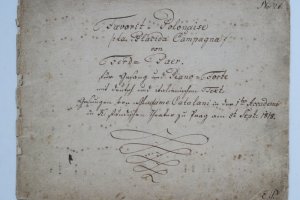 Favorit-Polonoise
(La Placida Campagna)
von
Ferd. Paer.
für Gesang und Piano-Forte
mit deutsch und italienischen Text.
Gesungen von Madame Catalani in der 1ten Accademie
im K. Ständischen Theater zu Prag am Sept. 1818.